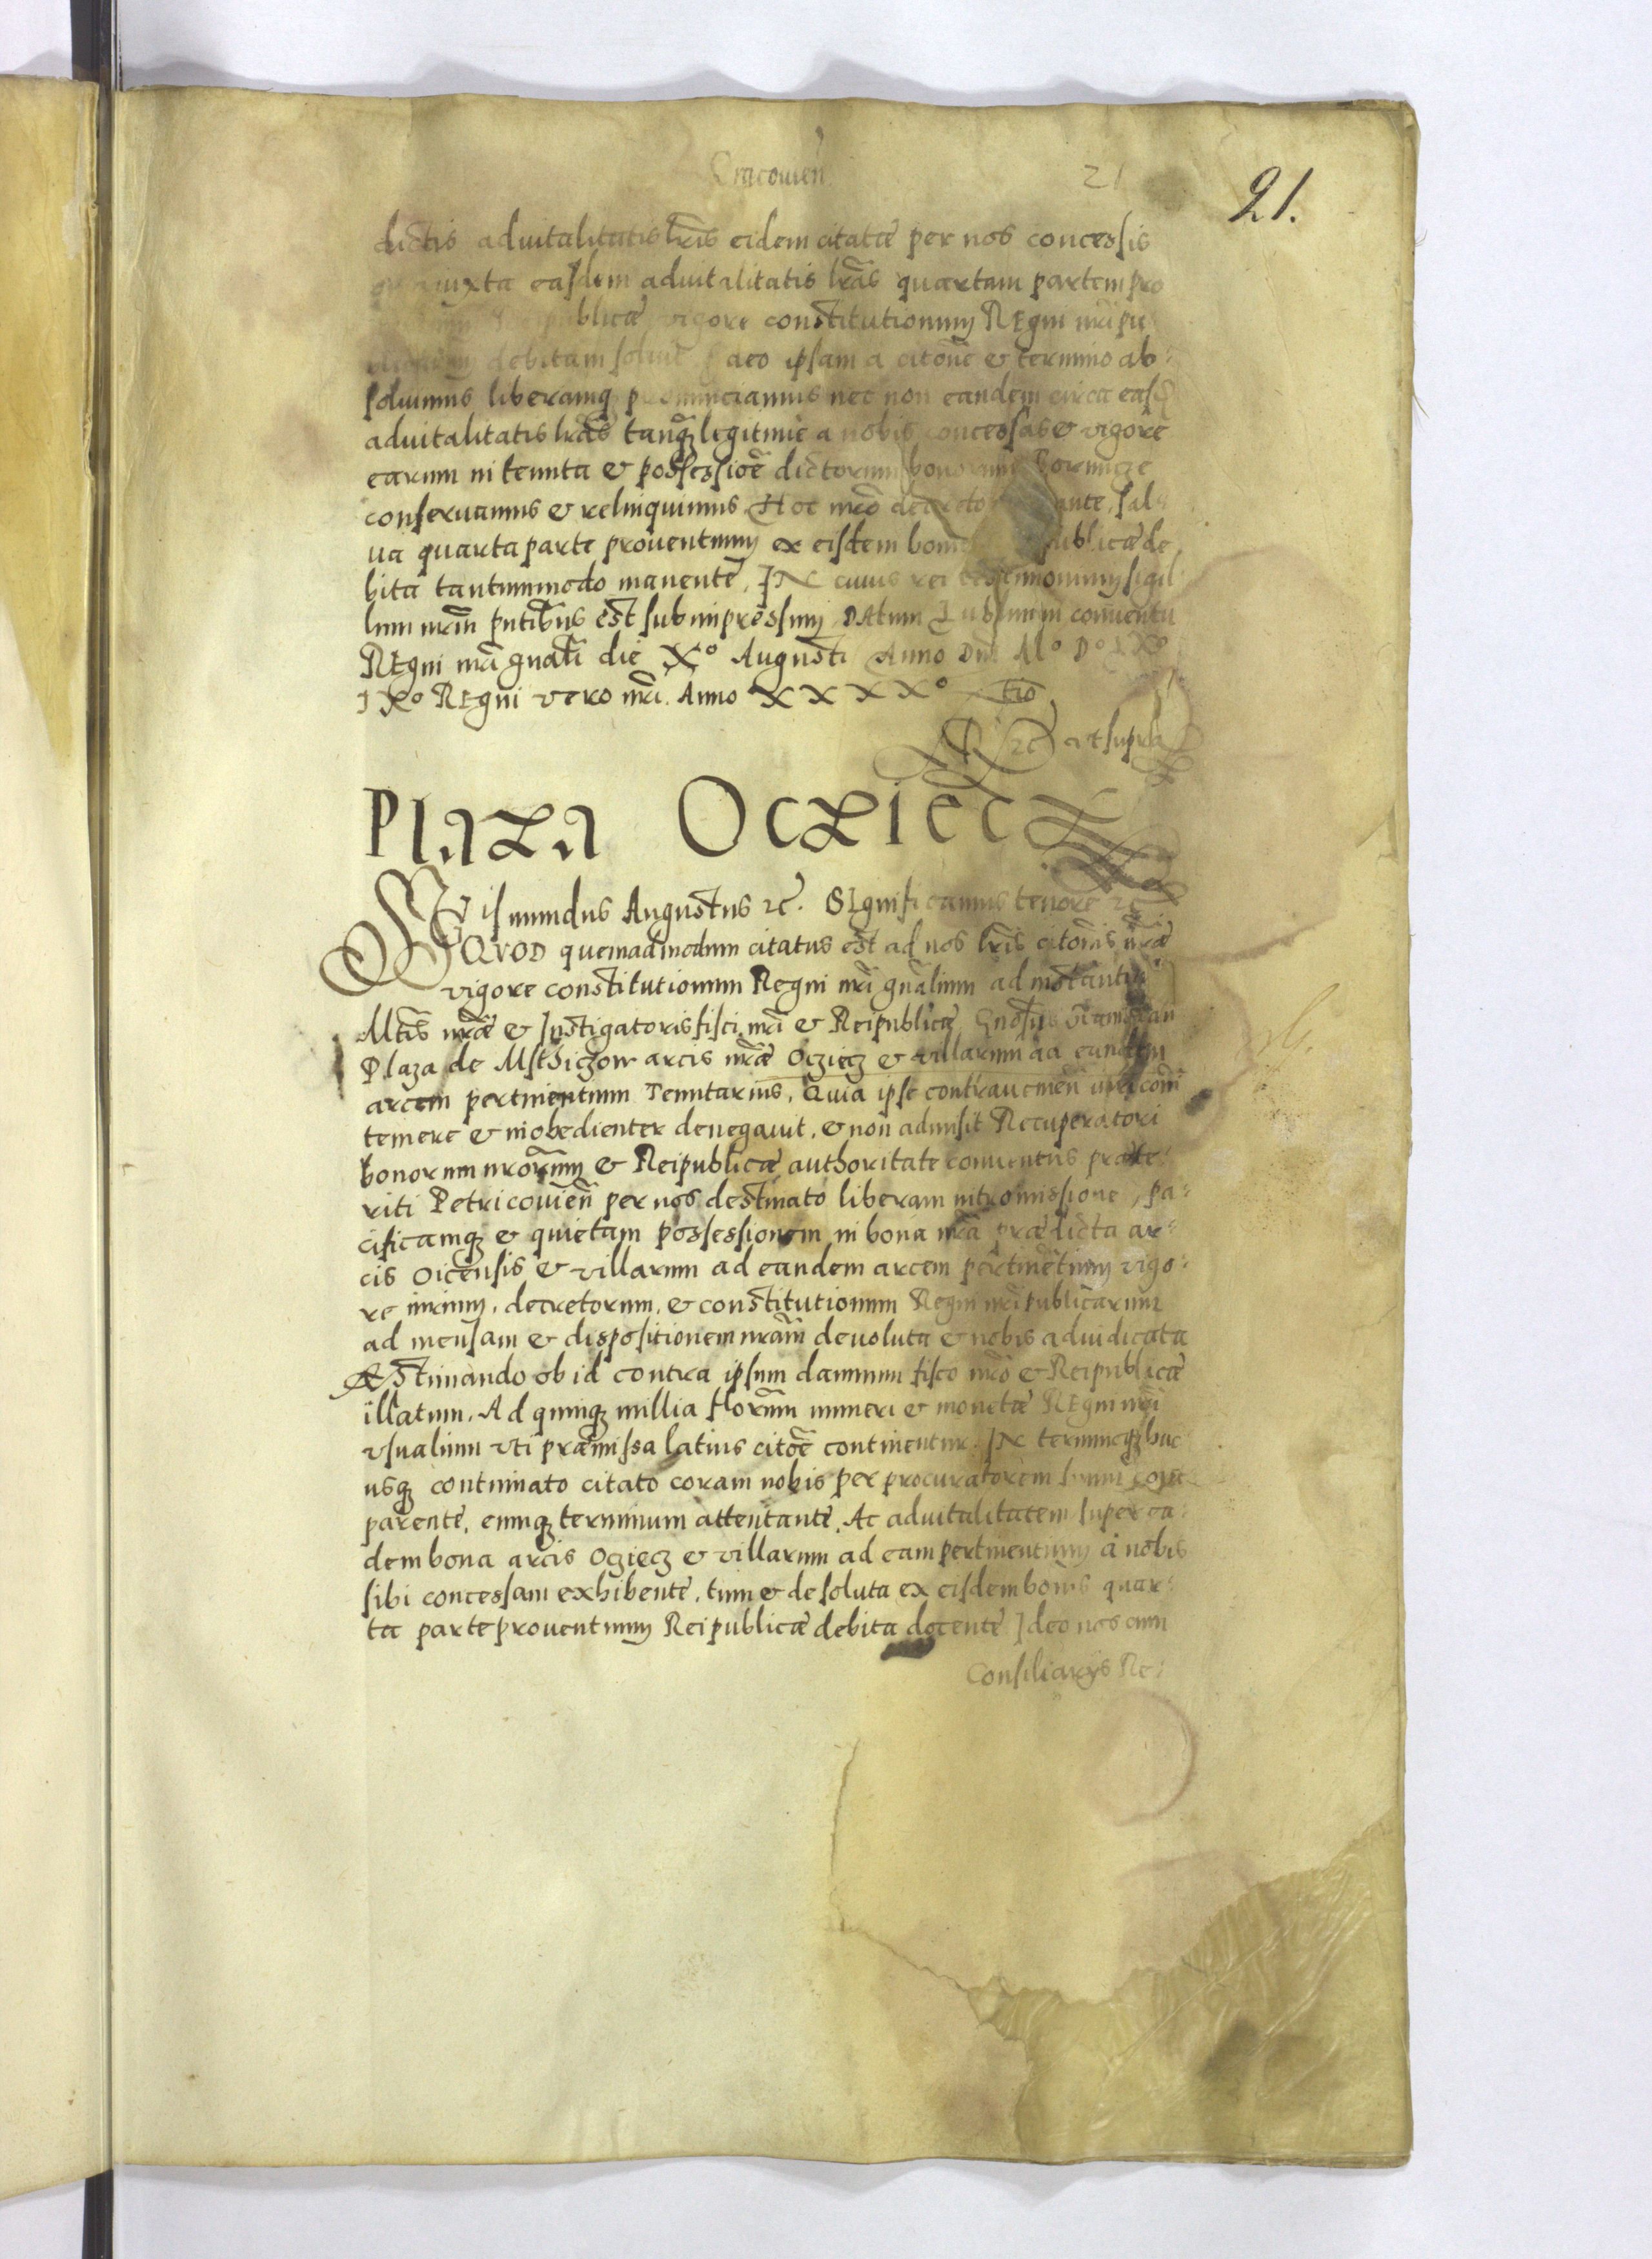 Cracouien̄
21
21.
dictis aduitalitatis lr̄is eidem citatæ per nos concessis
iuxta easdem aduitalitatis lr̄as quartam partem pro
blicæ vigore constitutionum REgni nr̄i pu
debitam soluit aeo ipsam a citōne & termino ab:
soluimus liberamq pronunciamus nec non eandem circa easd
aduitalitatis lr̄as tanq̄ʒ legitimè a nobis concessas & vigore
earum in tenuta & possessiōe dictorum bonorum
conseruamus & relinquimus. Hoc nr̄o decreto ante, sal
ua quarta parte prouentuum ex eisdem bonis publicæ de
bita tantummodo manente. IN cuius rei testimonium sigil
lum nr̄um pn̄tibus est subimpressum DAtum Lublini in conuentu
REgni nr̄i gn̄ali die Xº Augusti Anno Dn̄i Mº Dº LXº
IXº REgni vero nr̄i. Anno XXXXº
ꝛc̄ vt supra
PlaZa OcZiecZ
SIgismundus Augustus ꝛc. SIgnificamus tenore ꝛc
QVOD quemadmodum citatus est ad nos lr̄is citōnis nr̄æ
vigore constitutionum Regni nr̄i gn̄alium ad instantiā
Mtīs nr̄æ & Instigatoris fisci nr̄i & Reipublicæ Gn̄osus
Plaza de Msthiczow arcis nr̄æ Ocziecz & villarum ad eandem
arcem pertinentium Tenutarius. Quia ipse contrauemen̄
temere & inobedienter denegauit, & non admisit Recuperatori
bonorum nr̄orum & Reipublicæ authoritate conuentus præte:
riti Petricouien̄ per nos destinato liberam intromissione, pa:
cificamqʒ & quietam possessionem in bona nr̄a prædicta ar:
cis Oicensis & villarum ad eandem arcem pertinentium vigo:
re iurium, decretorum, & constitutionum Regni nr̄i publicarum
ad mensam & dispositionem nr̄am deuoluta & nobis adiudicata
Æstimando ob id contra ipsum damnum fisco nr̄o & Reipublicæ
illatum. Ad quinqʒ millia florenum numeri & monetæ REgni nr̄i
vsualium vti præmissa latius citōe continentur. IN terminoqʒ huc
usqʒ continuato citato coram nobis per procuratorem suum com
parente, eumqʒ terminum attentante. Ac aduitalitatem super ea:
dem bona arcis Oczięcz & villarum ad eam pertinentium à nobis
sibi concessam exhibente, tum & de soluta ex eisdem bonis quar:
ta parte prouentuum Reipublicæ debita docente Ideo nos cum
Consiliarijs Re: